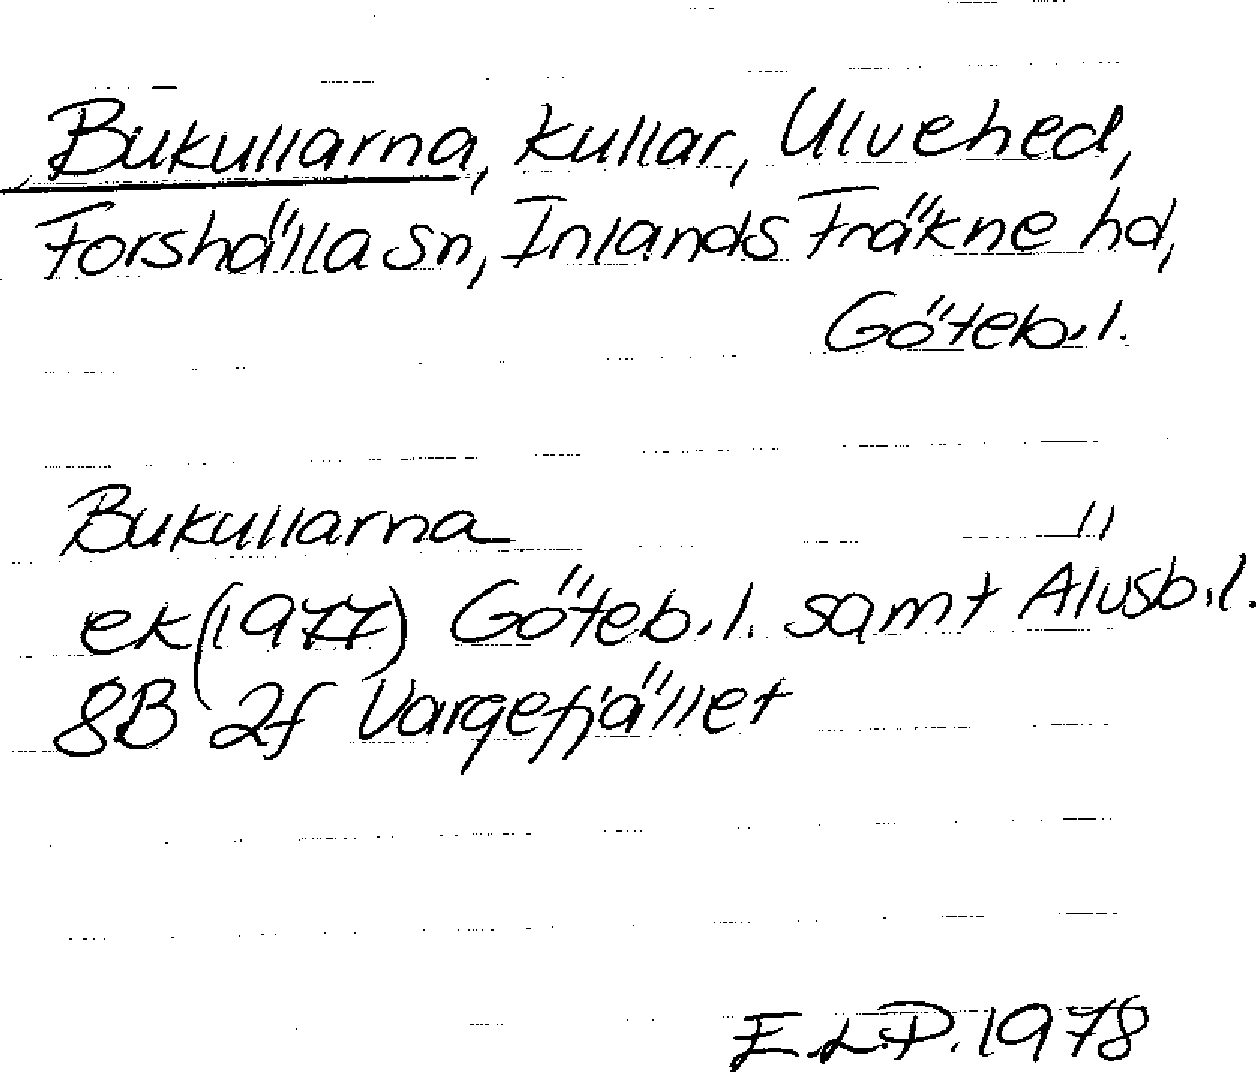 Bukullarna, kullar, Ulvehed,
Forshälla sn, Inlands Fräkne hd,
Göteb.l.
Bukullarna "
ek (1977) Göteb.l. samt Älvsb.l.
8B 2f Vargefjället
E.L.P. 1978